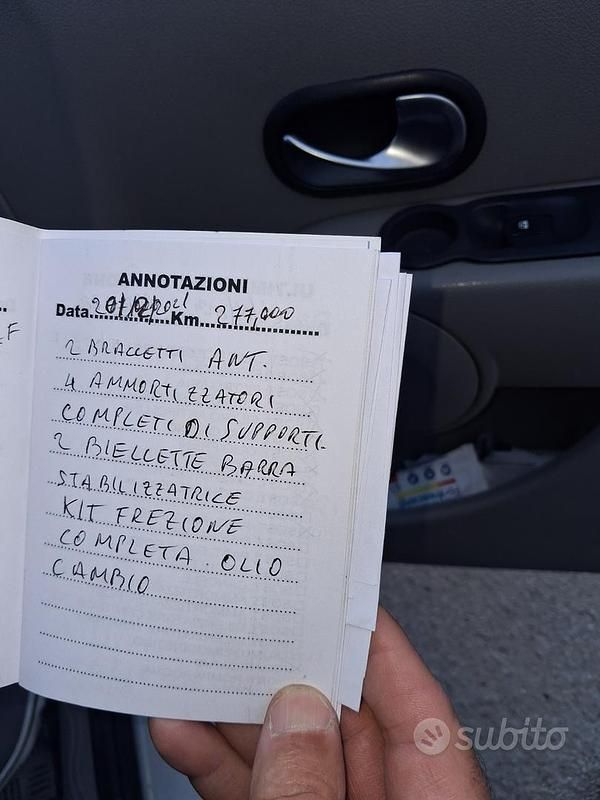 ANNOTAZIONI
Data Km 277,000
2 BRACCETTI ANT.
4 AMMORTIZZATORI
COMPLETI DI SUPPORTI.
2 BIELLETTE BARRA
STABILIZZATRICE
KIT FREZIONE
COMPLETA. OLIO
CAMBIO
subito